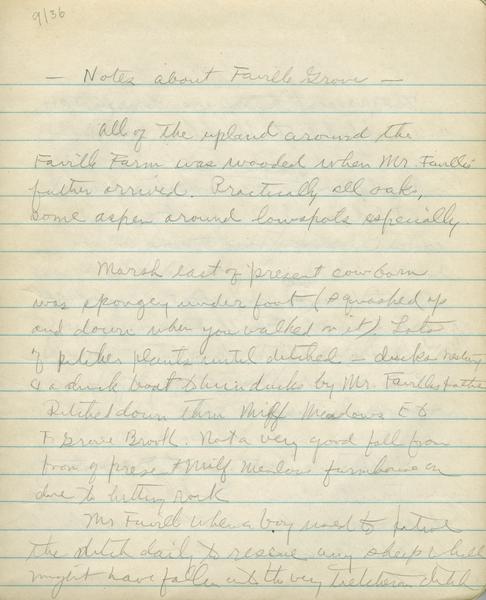 9/36
— Notes about Faville Grove —
All of the upland around the
Faville Farm was wooded when Mr. Faville's
father arrived. Practically all oak,
some aspen around lowspots especially.
Marsh east of present cowbarn
was spongey under foot (squashed up
and down when you walked on it). Lots
of pitcher plants until ditched — ducks nesting
& a duck boat by Mr. Faville's father
Ditched down thru Miff Meadows
Brook. Not a very good fall from
of present Miff Meadow farmhouse on
due to hitting rock
Mr Faville when a boy used to patrol
the ditch daily to rescue any sheep which
might have fallen into the very ditch